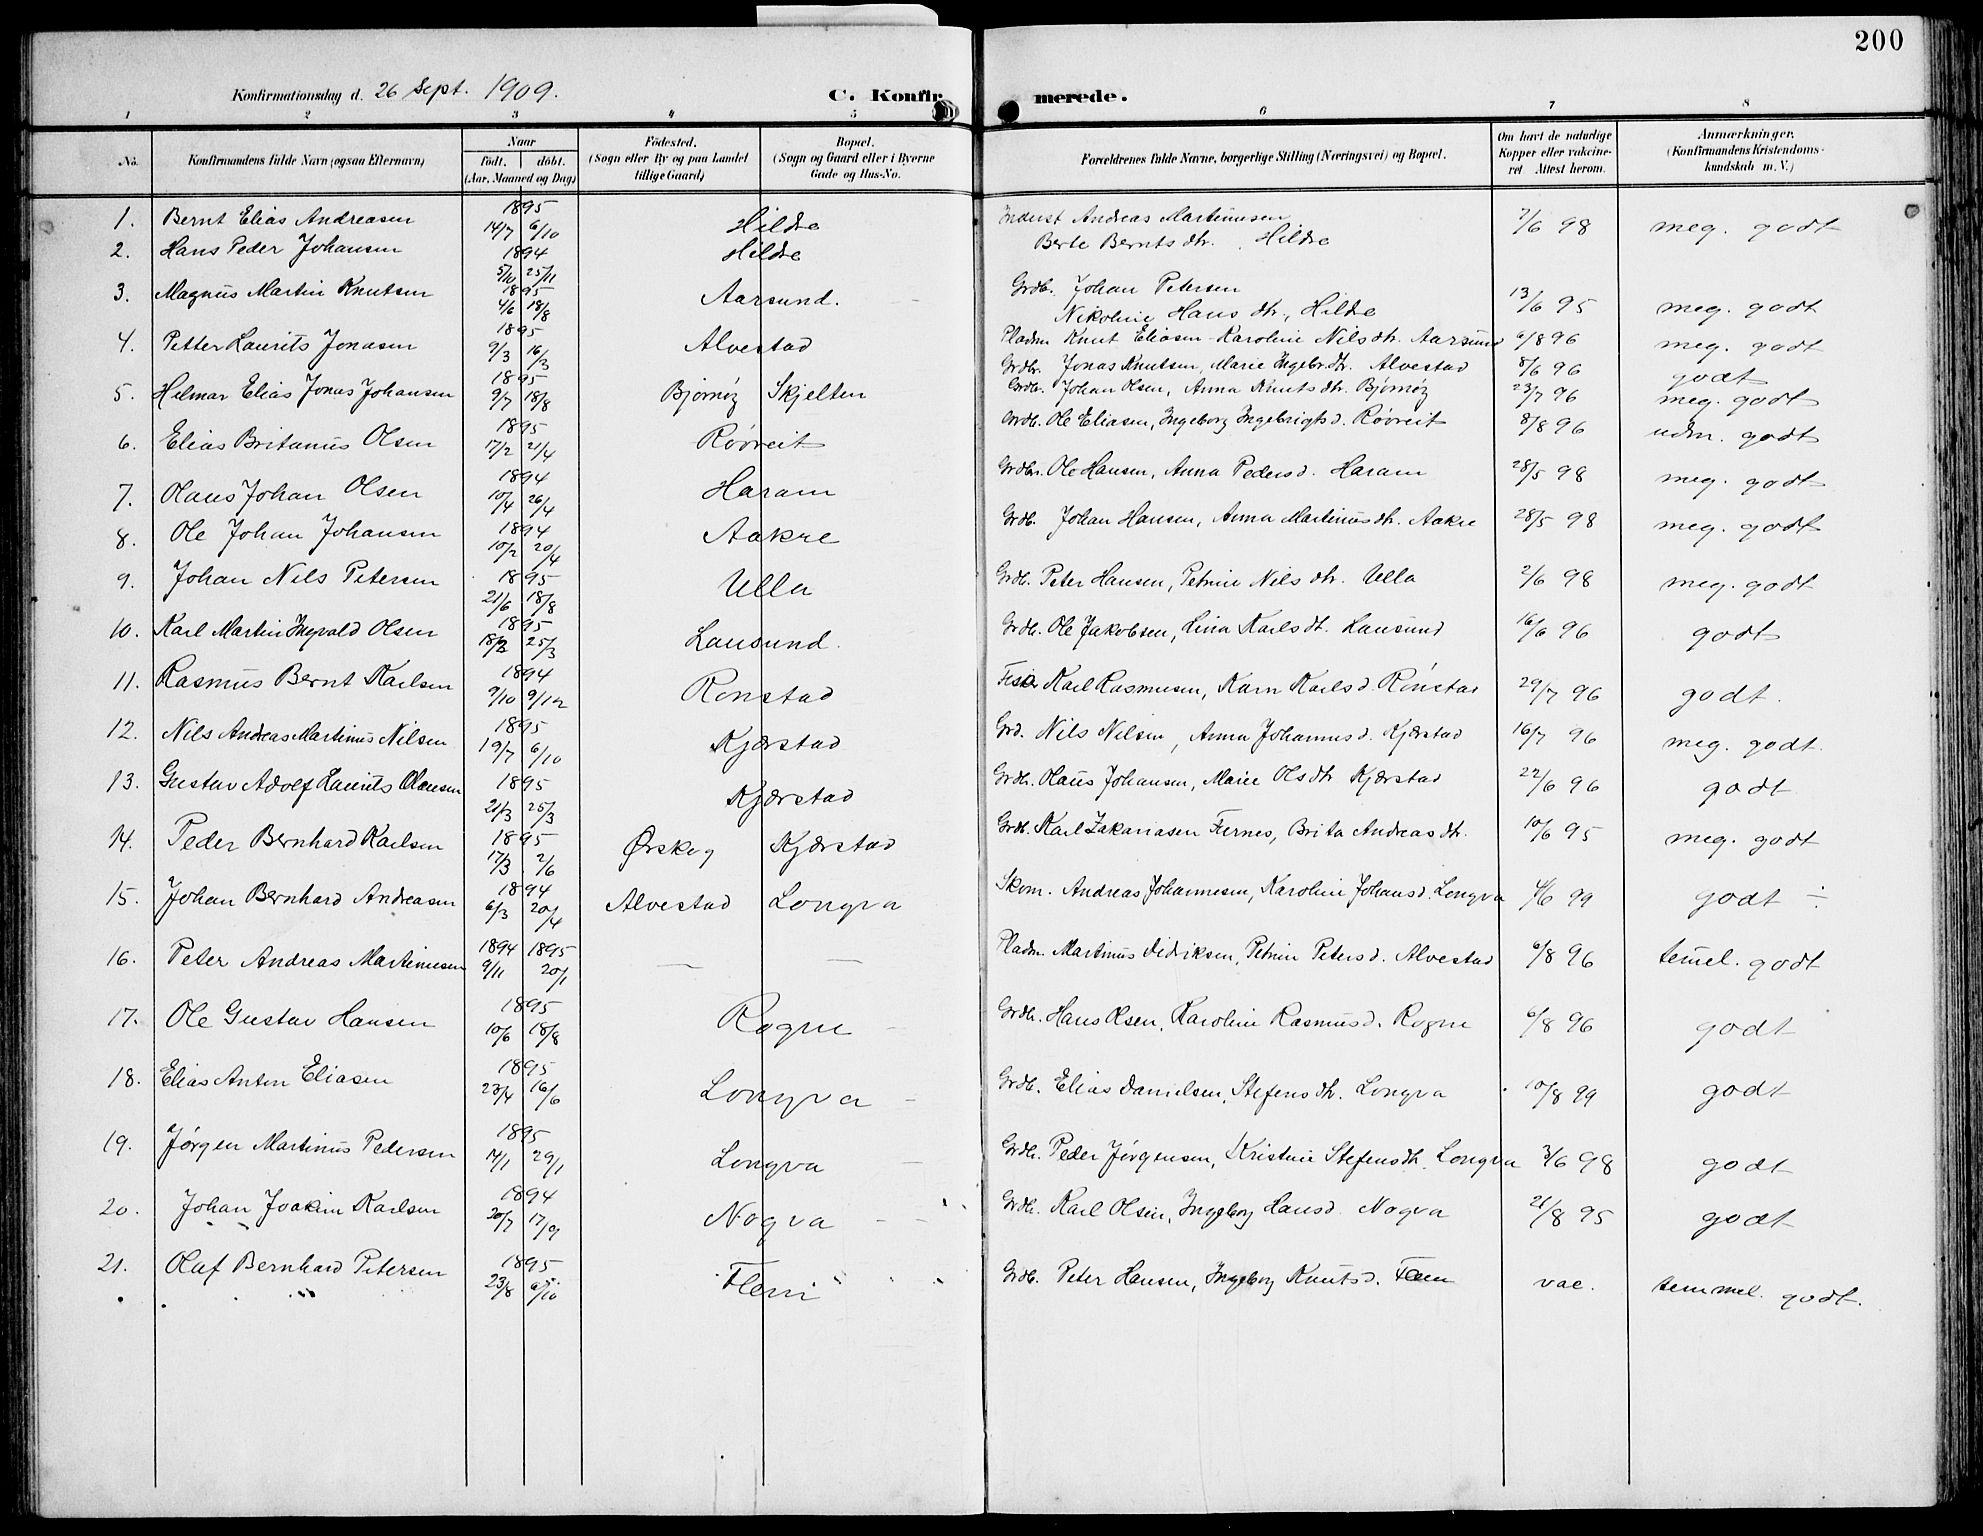 200
Konfirmationsdag d. 26 Sept. 1909.
C. Konfirmerede.
1 2 3 4 5 6 7 8
No. Konfirmandens fulde Navn (ogsaa Efternavn) Naar født. døbt. (Aar, Maaned og Dag) Födested. (Sogn eller By og paa Landet tillige Gaard) Bopæl. (Sogn og Gaard eller i Byerne Gade og Hus-No. Forældrenes fulde Navne, borgerlige Stilling (Næringsvei) og Bopæl. Om havt de naturlige Kopper eller vakcineret Attest herom. Anmærkninger. (Konfirmandens Kristendomskundskab m. V.)
1. Bernt Elias Andreasen 1895 14/7 6/10 Hildre Inderst Andreas Martinusen 7/6 98 meg. godt
Berte Berntsdtr. Hildre
2. Hans Peder Johansen 1894 5/10 25/11 Hildre Grdb. Johan Petersen 13/6 95 meg. godt
Nikoline Hansdtr., Hildre
3. Magnus Martin Knutsen 1895 4/6 18/8 Aarsund. Pladsm Knut Eliasen - Karoline Nilsdtr. Aarsund 6/8 96 meg. godt
4. Petter Laurits Jonasen 1895 9/3 16/3 Alvestad Grdb. Jonas Knutsen, Marie Ingebr.dtr. Alvestad 8/6 96 godt
5. Hilmar Elias Jonas Johansen 1895 9/7 18/8 Bjørnøy Skjelten Grdb. Johan Olsen, Anna Knutsdtr. Bjørnøy 23/7 96 meg. godt
6. Elias Britanus Olsen 1895 17/2 21/4 Røvreit Grdb. Ole Eliasen, Ingeborg Ingebrigtsd. Røvreit 8/8 96 udm. godt
7. Olaus Johan Olsen 1894 10/4 26/4 Haram Grdbr. Ole Hansen, Anna Pedersd. Haram 28/5 98 meg. godt
8. Ole Johan Johansen 1894 10/2 20/4 Aakre Grdb. Johan Hansen, Anna Martinusdtr. Aakre 28/5 98 meg. godt
9. Johan Nils Petersen 1895 21/6 18/8 Ulla Grdb. Peter Hansen, Petrine Nilsdtr. Ulla 2/6 98 meg. godt
10. Karl Martin Ingvald Olsen 1895 18/2 25/3 Lausund. Grdb. Ole Jakobsen, Lina Karlsdt. Lausund 16/6 96 godt
11. Rasmus Bernt Karlsen 1894 9/10 9/12 Rønstad Fisker Karl Rasmusen, Karn Karlsd. Rønstad 29/7 96 godt.
12. Nils Andreas Martinus Nilsen 1895 19/7 6/10 Kjærstad Grd. Nils Nilsen, Anna Johannesd. Kjærstad 16/7 96 meg. godt.
13. Gustav Adolf Laurits Olausen 1895 21/3 25/3 Kjærstad Grdb. Olaus Johansen, Marie Olsdtr Kjærstad 22/6 96 godt
14. Peder Bernhard Karlsen 1895 17/3 2/6 Ørskog Kjærstad Grdb. Karl Zakariasen Fernes, Brita Andreasdtr. 10/6 95 meg. godt
15. Johan Bernhard Andreasen 1894 6/3 20/4 Alvestad Longva Skom. Andreas Johannesen, Karoline Johansd. Longva 4/6 99 godt ÷
16. Peter Andreas Martinusen 1894 9/11 1895 20/1 — — Pladsm. Martinus Didriksen, Petrine Petersd. Alvestad 6/8 96 temel. godt
17. Ole Gustav Hansen 1895 10/6 18/8 Rogne Grdb. Hans Olsen, Karoline Rasmusd. Rogne 6/8 96 godt
18. Elias Anton Eliasen 1895 23/4 16/6 Longva Grdb. Elias Danielsen, Stefensdtr. Longva 10/8 99 godt
19. Jørgen Martinus Pedersen 1895 14/1 29/1 Longva Grdb. Peder Jørgensen, Kristine Stefensdtr. Longva 3/6 98 godt
20. Johan Joakim Karlsen 1894 20/7 17/9 Nogva Grdb. Karl Olsen, Ingeborg Hansd. Nogva 21/8 95 godt
21. Olaf Bernhard Petersen 1895 23/8 6/10 Flem Grdb. Peter Hansen, Ingeborg Knutsd. Flem vac. temmel. godt.